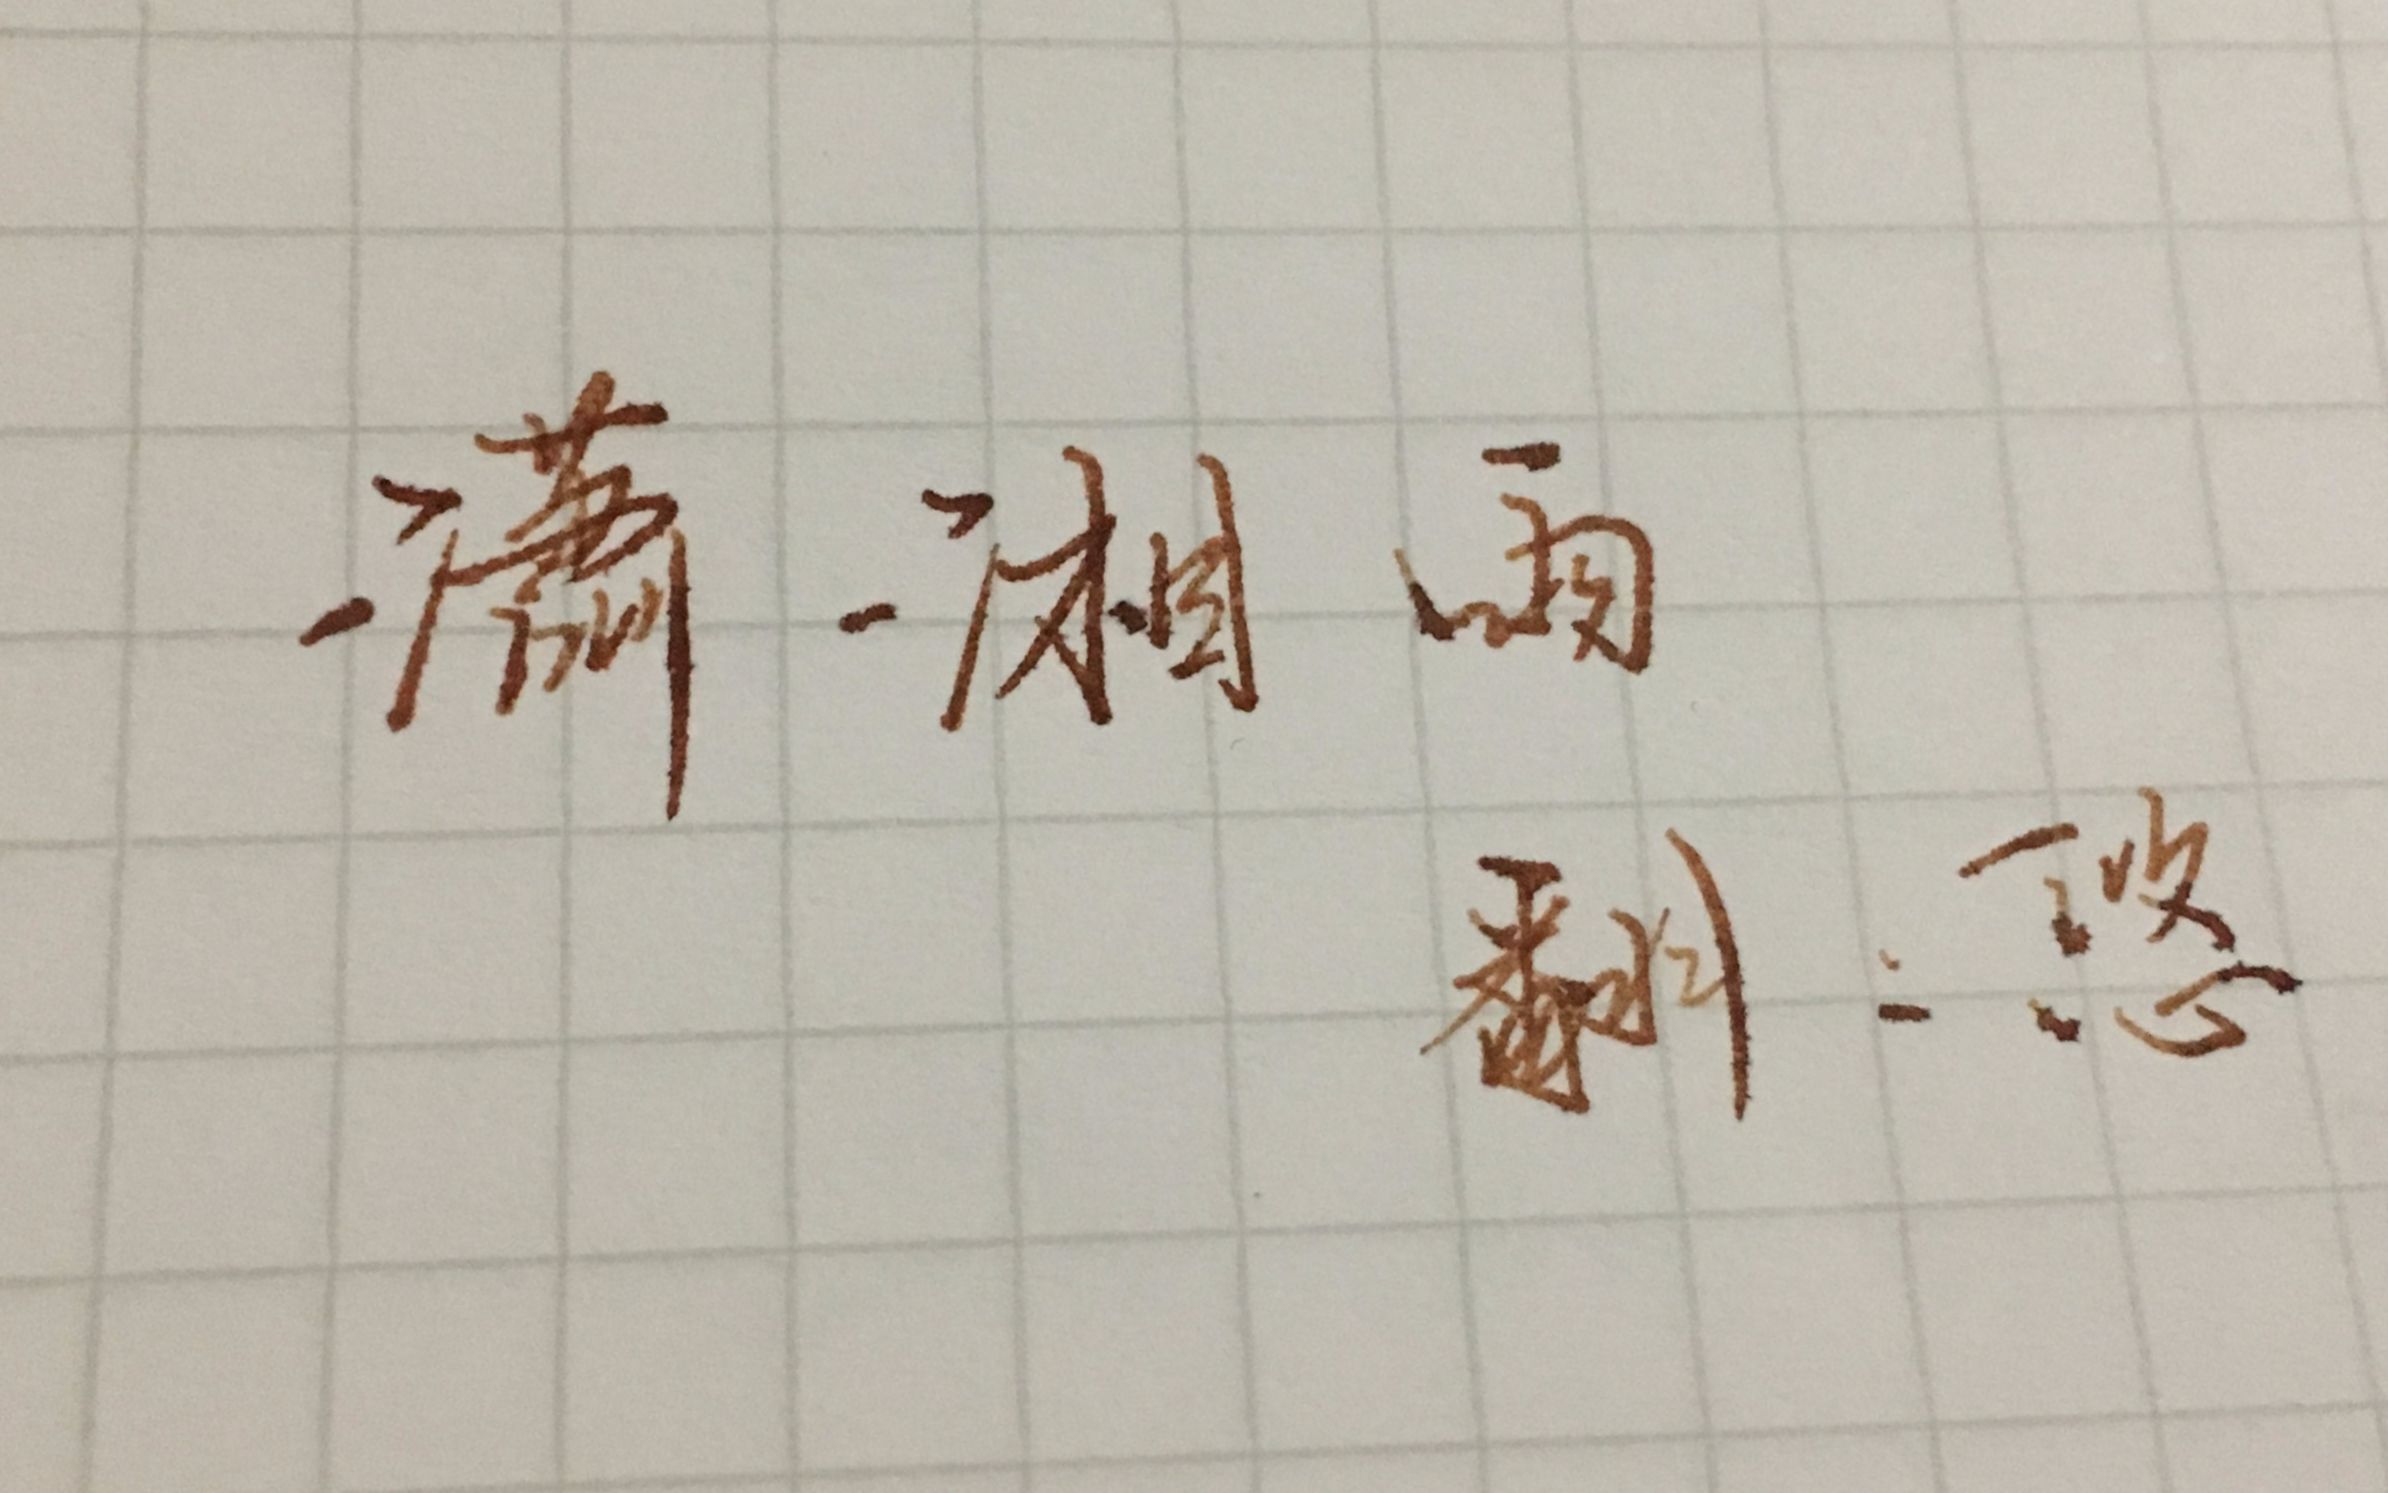 潇湘雨
翻：悠